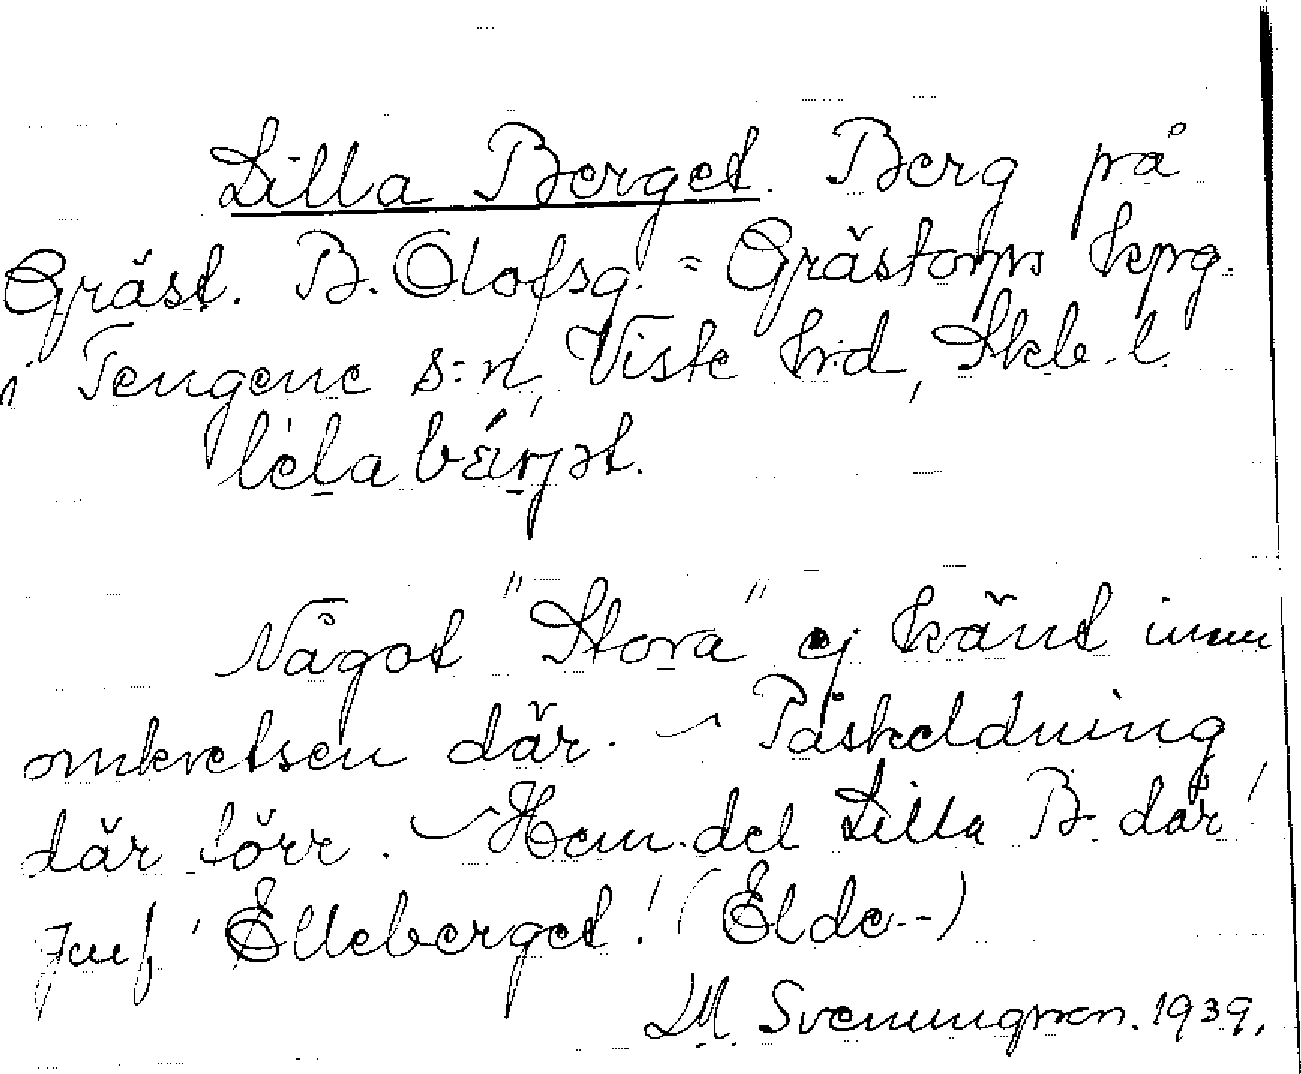 Lilla Berget. Berg på
Gräst. B. Olofsg. = Grästorps kpg.
i Tengene s:n, Viste hrd, Skb. l.
lela bärjət.
Något "Stora" ej känt inom
omkretsen där. - Påskeldning
där förr. - Hem. del Lilla B. där!
Jmf, 'Elleberget'! (Elde-)
LM. Svenungsson. 1939.